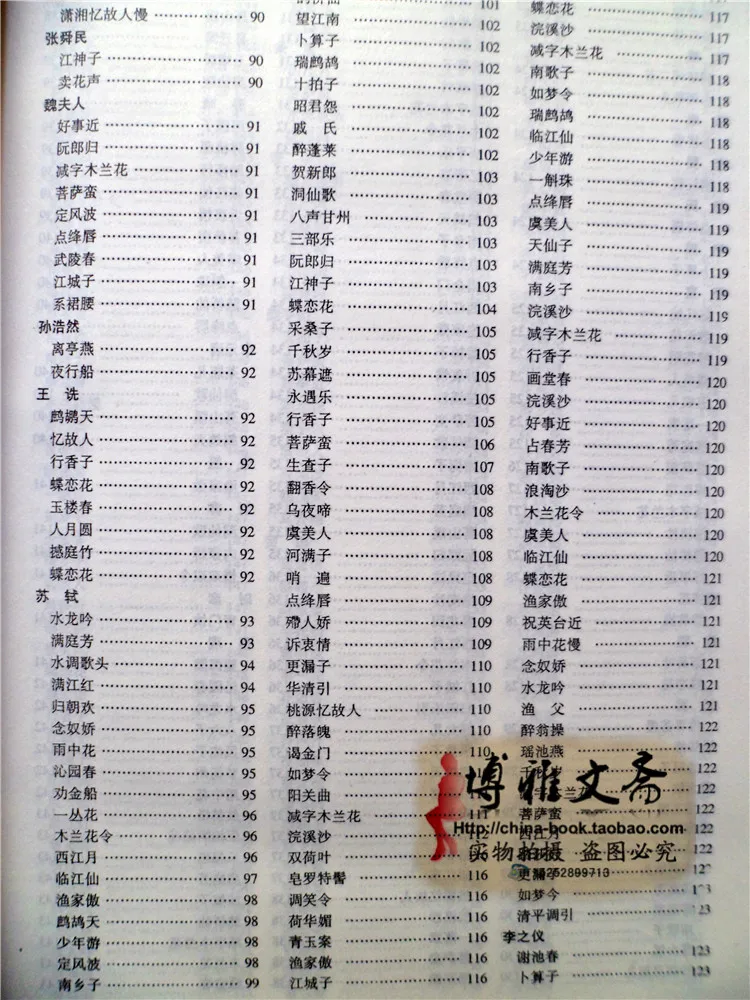 潇湘忆故人慢 ………… 90
张舜民
江神子 ………… 90
卖花声 ………… 90
魏夫人
好事近 ………… 91
阮郎归 ………… 91
减字木兰花 ………… 91
菩萨蛮 ………… 91
定风波 ………… 91
点绛唇 ………… 91
武陵春 ………… 91
江城子 ………… 91
系裙腰 ………… 91
孙浩然
离亭燕 ………… 92
夜行船 ………… 92
王 诜
鹧鸪天 ………… 92
忆故人 ………… 92
行香子 ………… 92
蝶恋花 ………… 92
玉楼春 ………… 92
人月圆 ………… 92
撼庭竹 ………… 92
蝶恋花 ………… 92
苏 轼
水龙吟 ………… 93
满庭芳 ………… 93
水调歌头 ………… 94
满江红 ………… 94
归朝欢 ………… 95
念奴娇 ………… 95
雨中花 ………… 95
沁园春 ………… 95
劝金船 ………… 95
一丛花 ………… 96
木兰花令 ………… 96
西江月 ………… 96
临江仙 ………… 97
渔家傲 ………… 98
鹧鸪天 ………… 98
少年游 ………… 98
定风波 ………… 98
南乡子 ………… 99
101
望江南 ………… 102
卜算子 ………… 102
瑞鹧鸪 ………… 102
十拍子 ………… 102
昭君怨 ………… 102
戚 氏 ………… 102
醉蓬莱 ………… 102
贺新郎 ………… 103
洞仙歌 ………… 103
八声甘州 ………… 103
三部乐 ………… 103
阮郎归 ………… 103
江神子 ………… 103
蝶恋花 ………… 104
采桑子 ………… 105
千秋岁 ………… 105
苏幕遮 ………… 105
永遇乐 ………… 105
行香子 ………… 105
菩萨蛮 ………… 106
生查子 ………… 107
翻香令 ………… 108
乌夜啼 ………… 108
虞美人 ………… 108
河满子 ………… 108
哨 遍 ………… 108
点绛唇 ………… 109
殢人娇 ………… 109
诉衷情 ………… 109
更漏子 ………… 110
华清引 ………… 110
桃源忆故人 ………… 110
醉落魄 ………… 110
谒金门 ………… 110
如梦令 …………
阳关曲 …………
减字木兰花 ………… 111
浣溪沙 ………… 112
双荷叶 …………
皂罗特髻 ………… 116
调笑令 ………… 116
荷华媚 ………… 116
青玉案 ………… 116
渔家傲 ………… 116
江城子 ………… 116
蝶恋花 ………… 117
浣溪沙 ………… 117
减字木兰花 ………… 117
南歌子 ………… 118
如梦令 ………… 118
瑞鹧鸪 ………… 118
临江仙 ………… 118
少年游 ………… 118
一斛珠 ………… 118
点绛唇 ………… 119
虞美人 ………… 119
天仙子 ………… 119
满庭芳 ………… 119
南乡子 ………… 119
浣溪沙 ………… 119
减字木兰花 ………… 119
行香子 ………… 119
画堂春 ………… 120
浣溪沙 ………… 120
好事近 ………… 120
占春芳 ………… 120
南歌子 ………… 120
浪淘沙 ………… 120
木兰花令 ………… 120
虞美人 ………… 120
临江仙 ………… 120
蝶恋花 ………… 121
渔家傲 ………… 121
祝英台近 ………… 121
雨中花慢 ………… 121
念奴娇 ………… 121
水龙吟 ………… 121
渔 父 ………… 121
醉翁操 ………… 122
瑶池燕 ………… 122
千秋岁 ………… 122
122
菩萨蛮 ………… 122
西江月 ………… 122
更漏子
如梦令 …………
清平调引 ………… 123
李之仪
谢池春 ………… 123
卜算子 ………… 123
博雅文斋
Http://china-book.taobao.com
实物拍摄 盗图必究